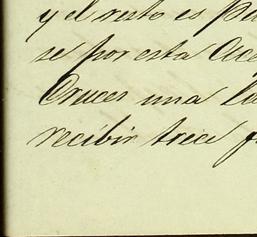 y el resto es
se por esta
Cruces una
recibir trece